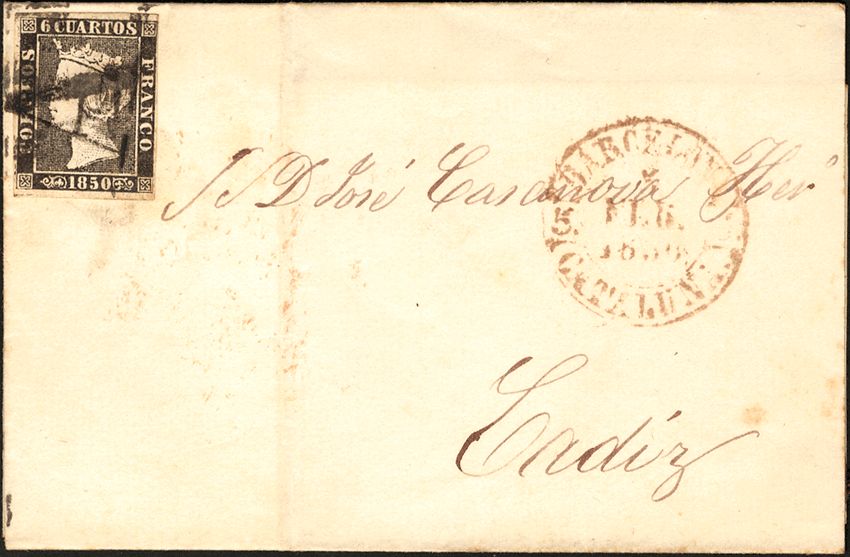 6 CUARTOS
CORREOS
FRANCO
1850
S D José Casanova Herº
BARCELONA
5
FEB.
1850
CATALUÑA
Cadiz